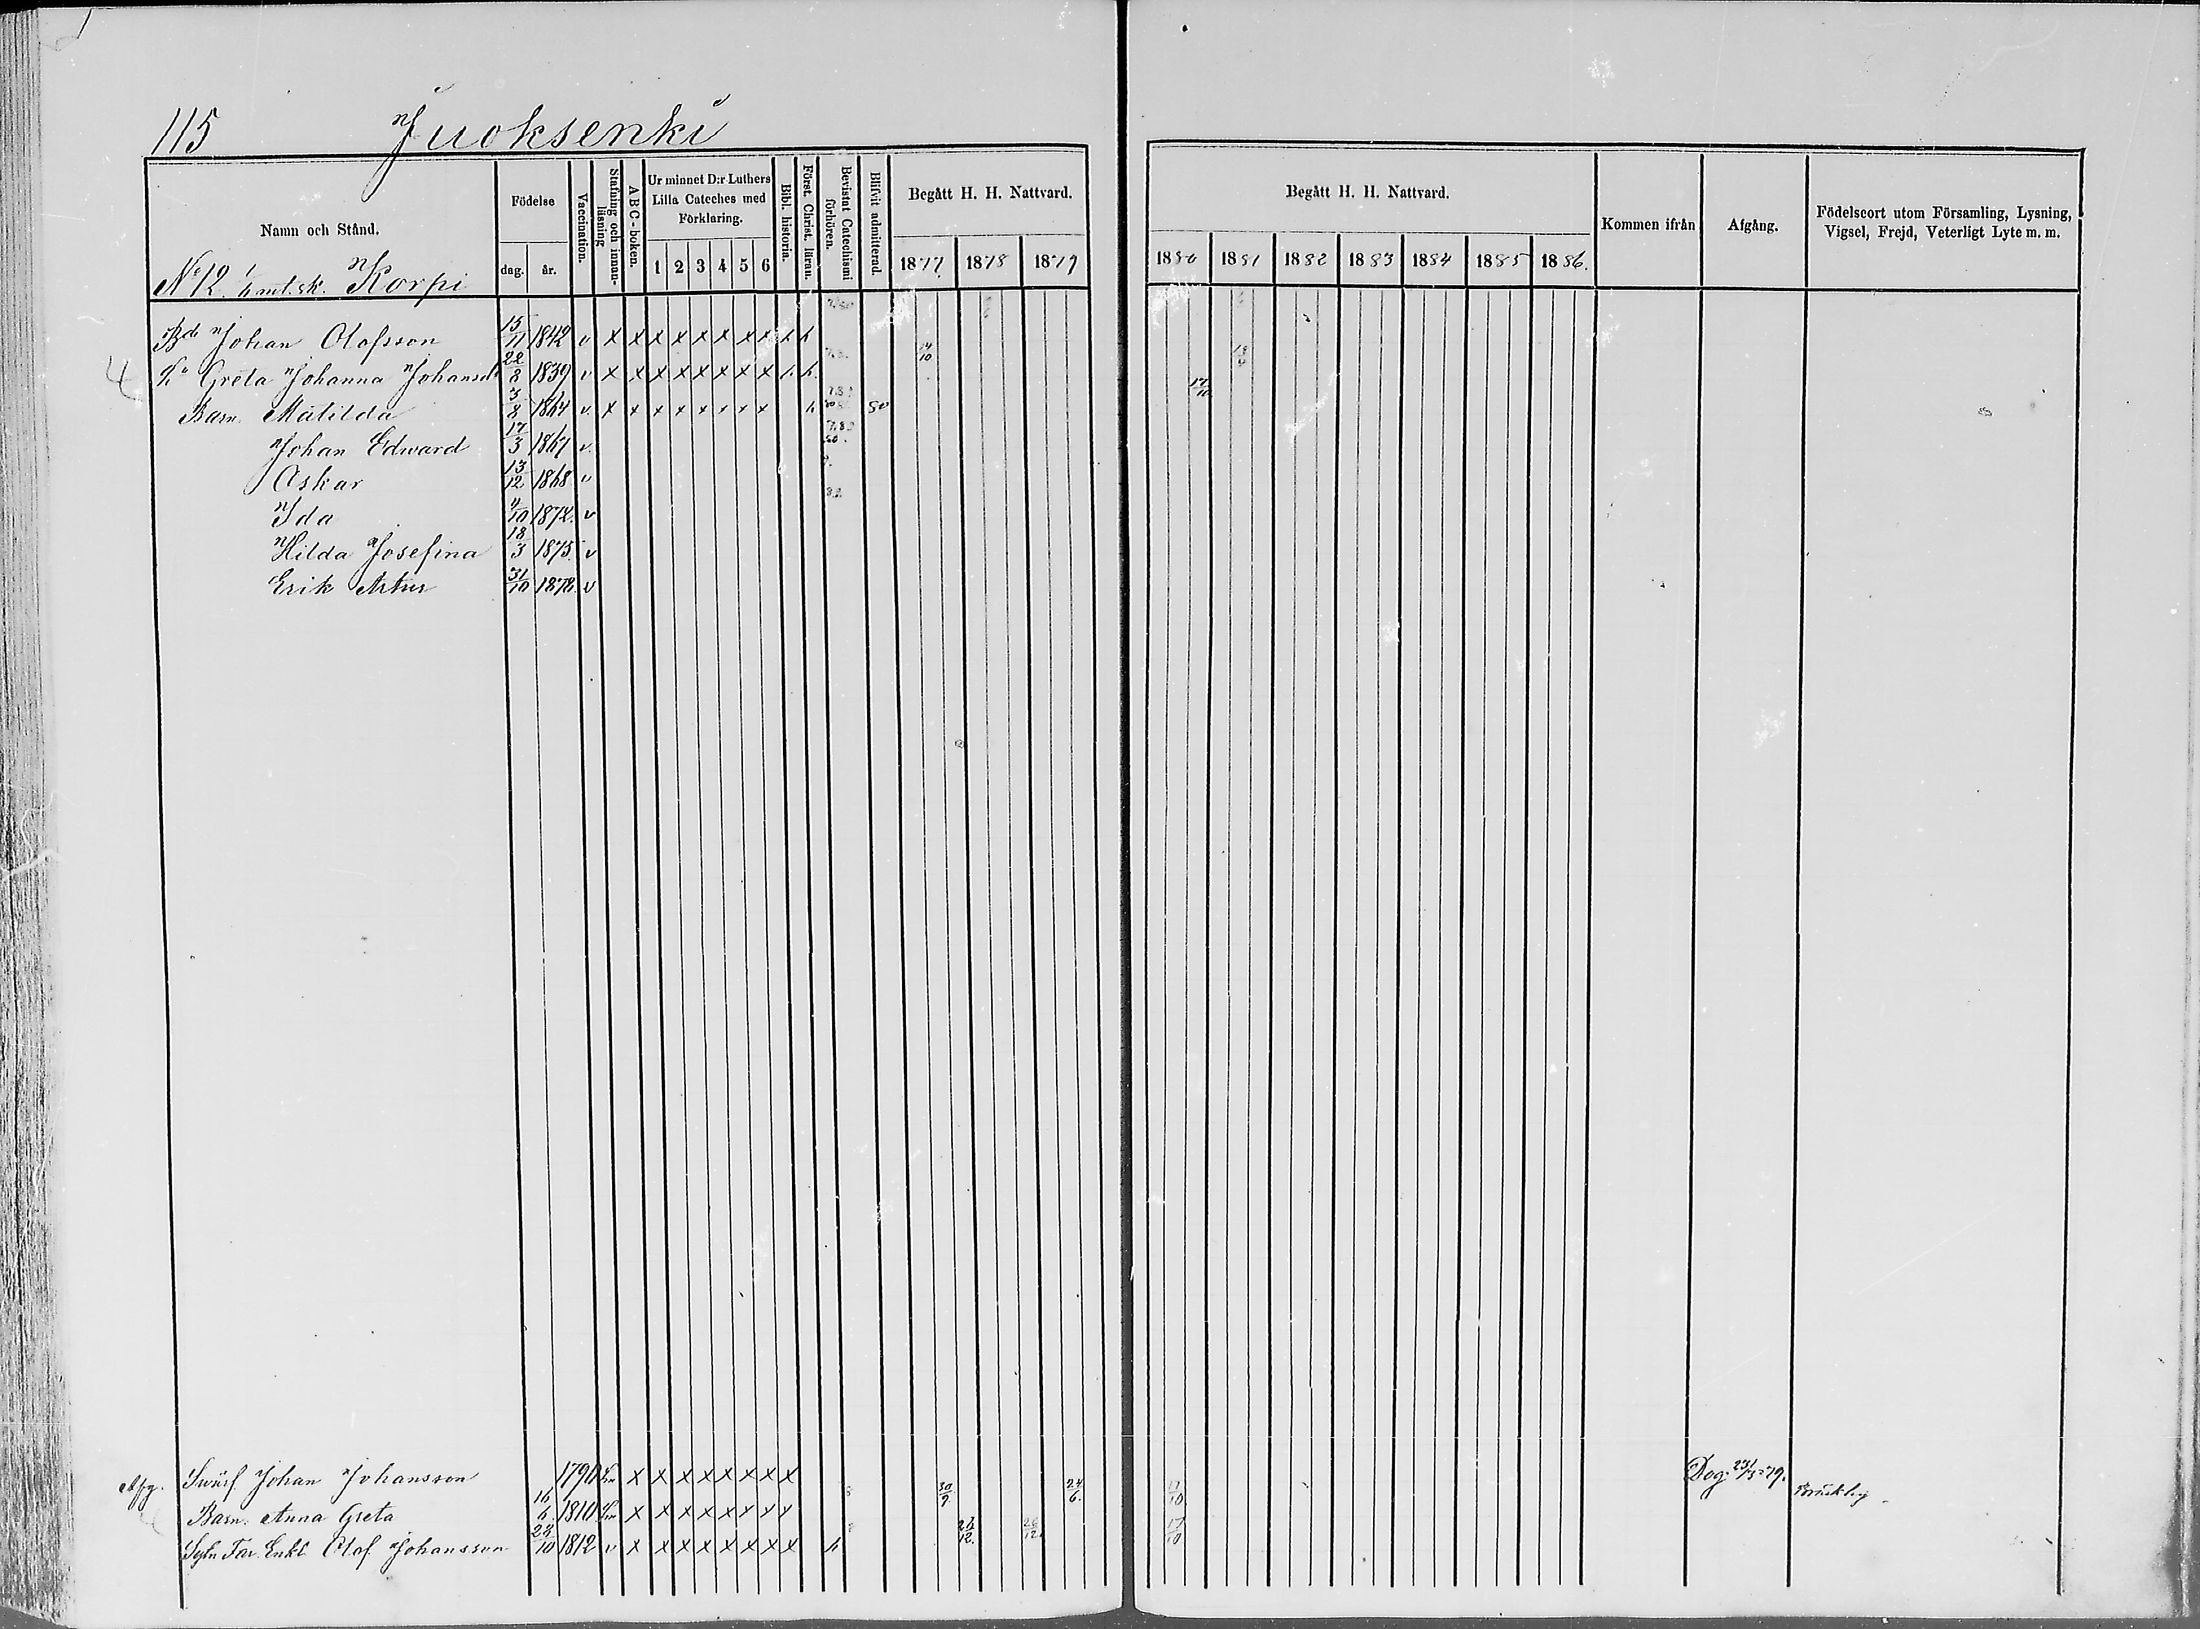 115 Juoksenki
Namn och Stånd. Födelse dag. år. Vaccination. Stafning och innanläsning ABC-boken. Ur minnet D:r Luthers Lilla Cateches med Förklaring. 1 2 3 4 5 6 Bibl. historia. Först. Christ. läran. Bevistat Catechismi förhören. Blifvit admitterad. Begått H. H. Nattvard. 1877 1878 1879
Begått H. H. Nattvard. 1880 1881 1882 1883 1884 1885 1886. Kommen ifrån Afgång. Födelseort utom Församling, Lysning, Vigsel, Frejd, Veterligt Lyte m. m.
No 12. mt. sk. Korpi
Johan Olofsson 15/11 1842 v x x x x x x x x 14/10
4 Greta Johanna 22/8 1839 v x x x x x x x x 17/10
Barn. Matilda 3/8 1864 v. x x x x x x x x 80
Johan Edward 17/3 1867 v.
Oskar 13/12 1868 v
Ida 1872. v
Hilda Josefina 18/3 1875. v
Erik Artur 31/10 1878. v
Johan Johansson 1790 x x x x x x x x
Barn. Anna Greta 16/6 1810 x x x x x x x x 30/9 24/6.
Enkl Olof Johansson 23/10 1812 v x x x x x x x x 26/12. 26/12 17/10